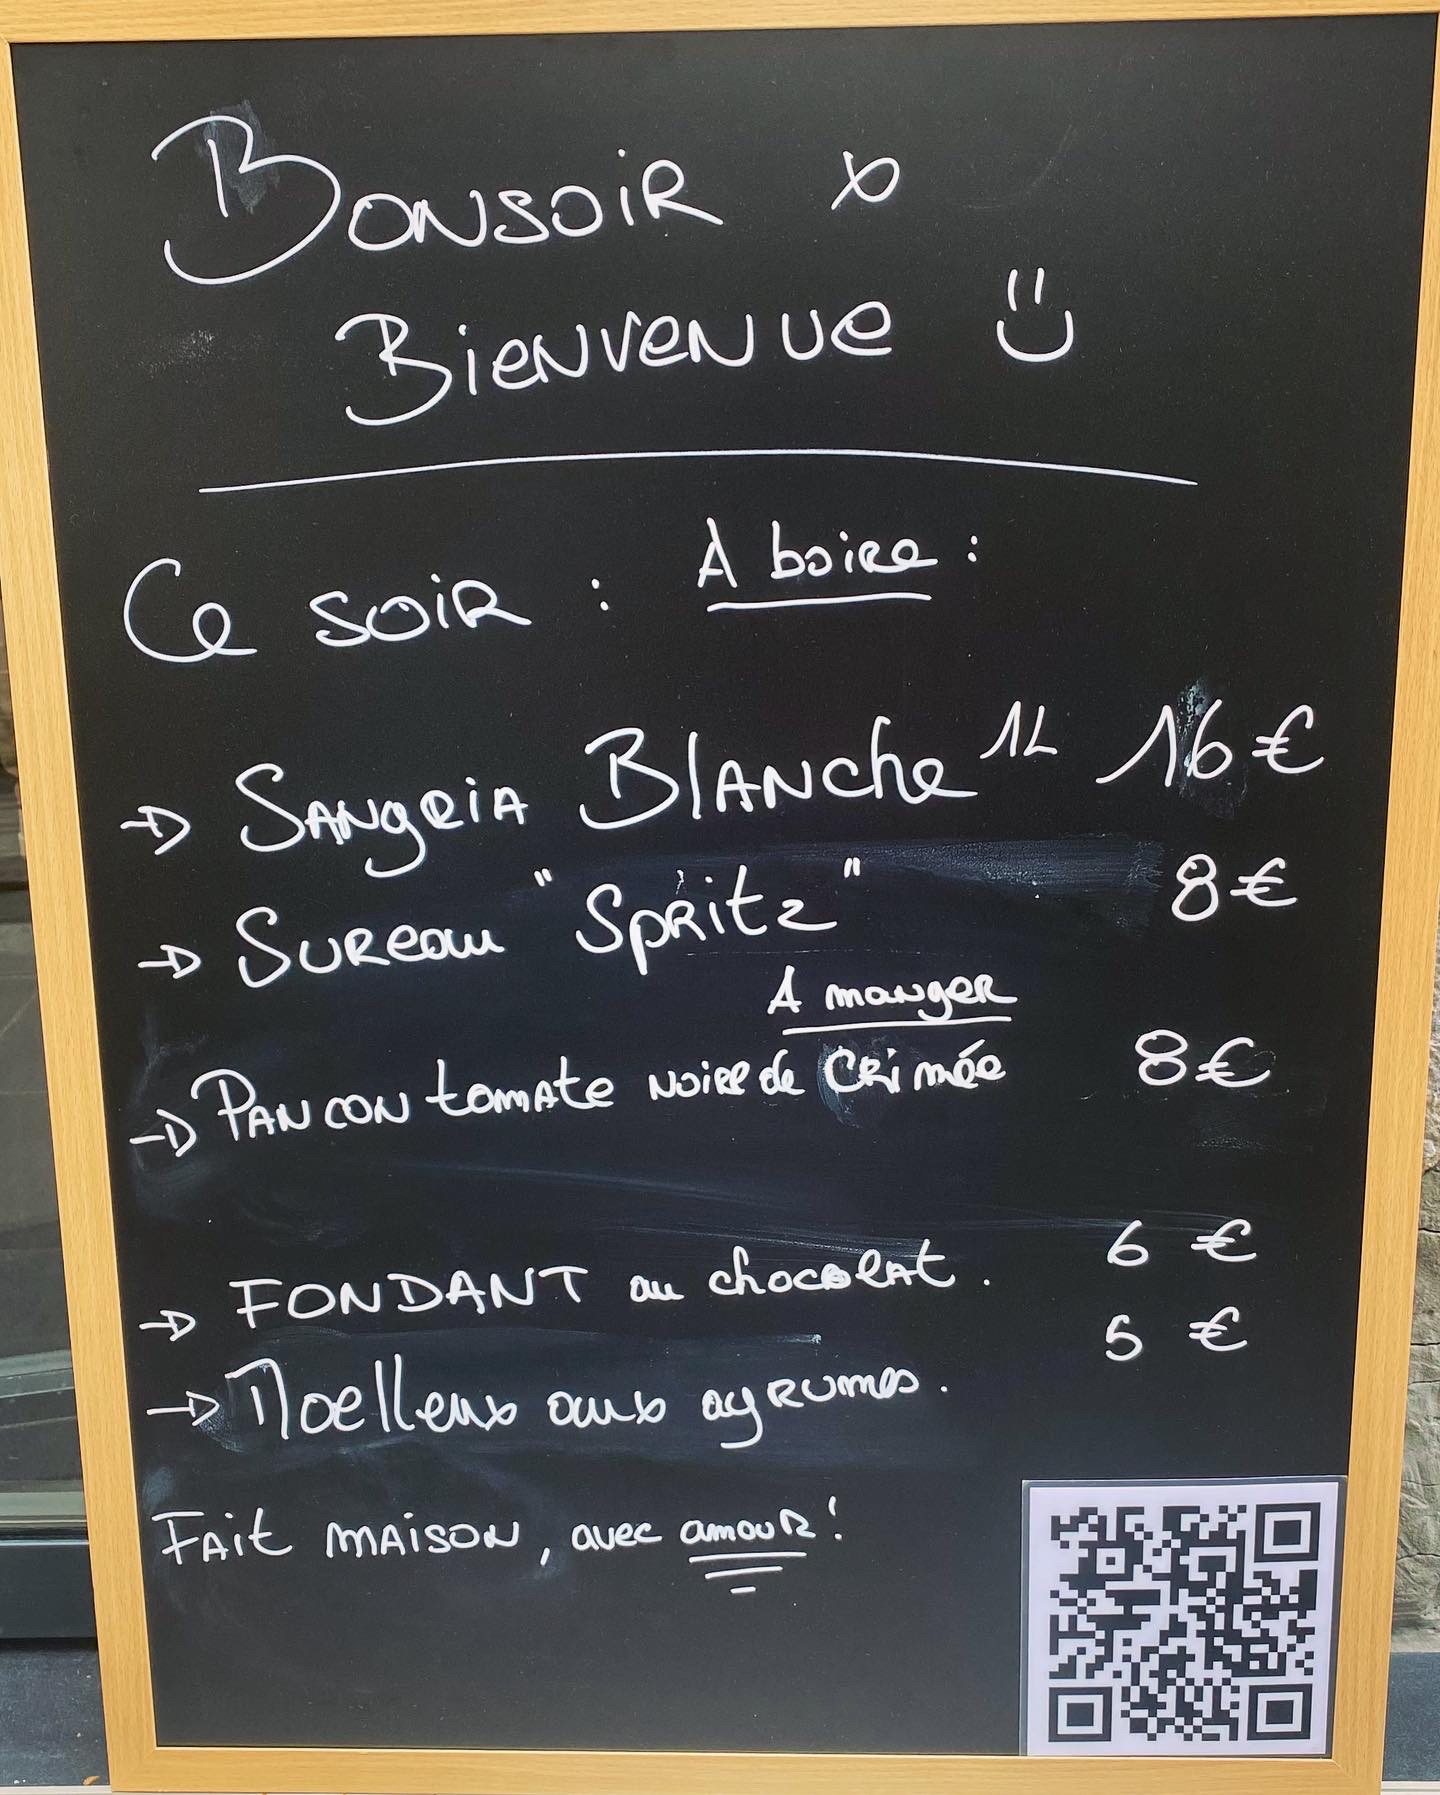 Bonsoir x
Bienvenue
Ce soir : A boire :
Sangria Blanche 1L 16€
Sureau "Spritz" 8€
A manger
Pan con tomate noire de Crimée 8€
FONDANT au chocolat. 6 €
Moelleux aux agrumes. 5 €
Fait maison, avec amour!